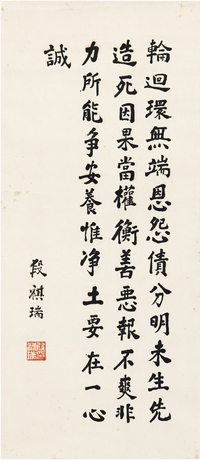 輪迴環無端恩怨債分明未生先
造死因果當權衡善惡報不爽非
力所能爭安養惟净土要在一心
誠
段祺瑞